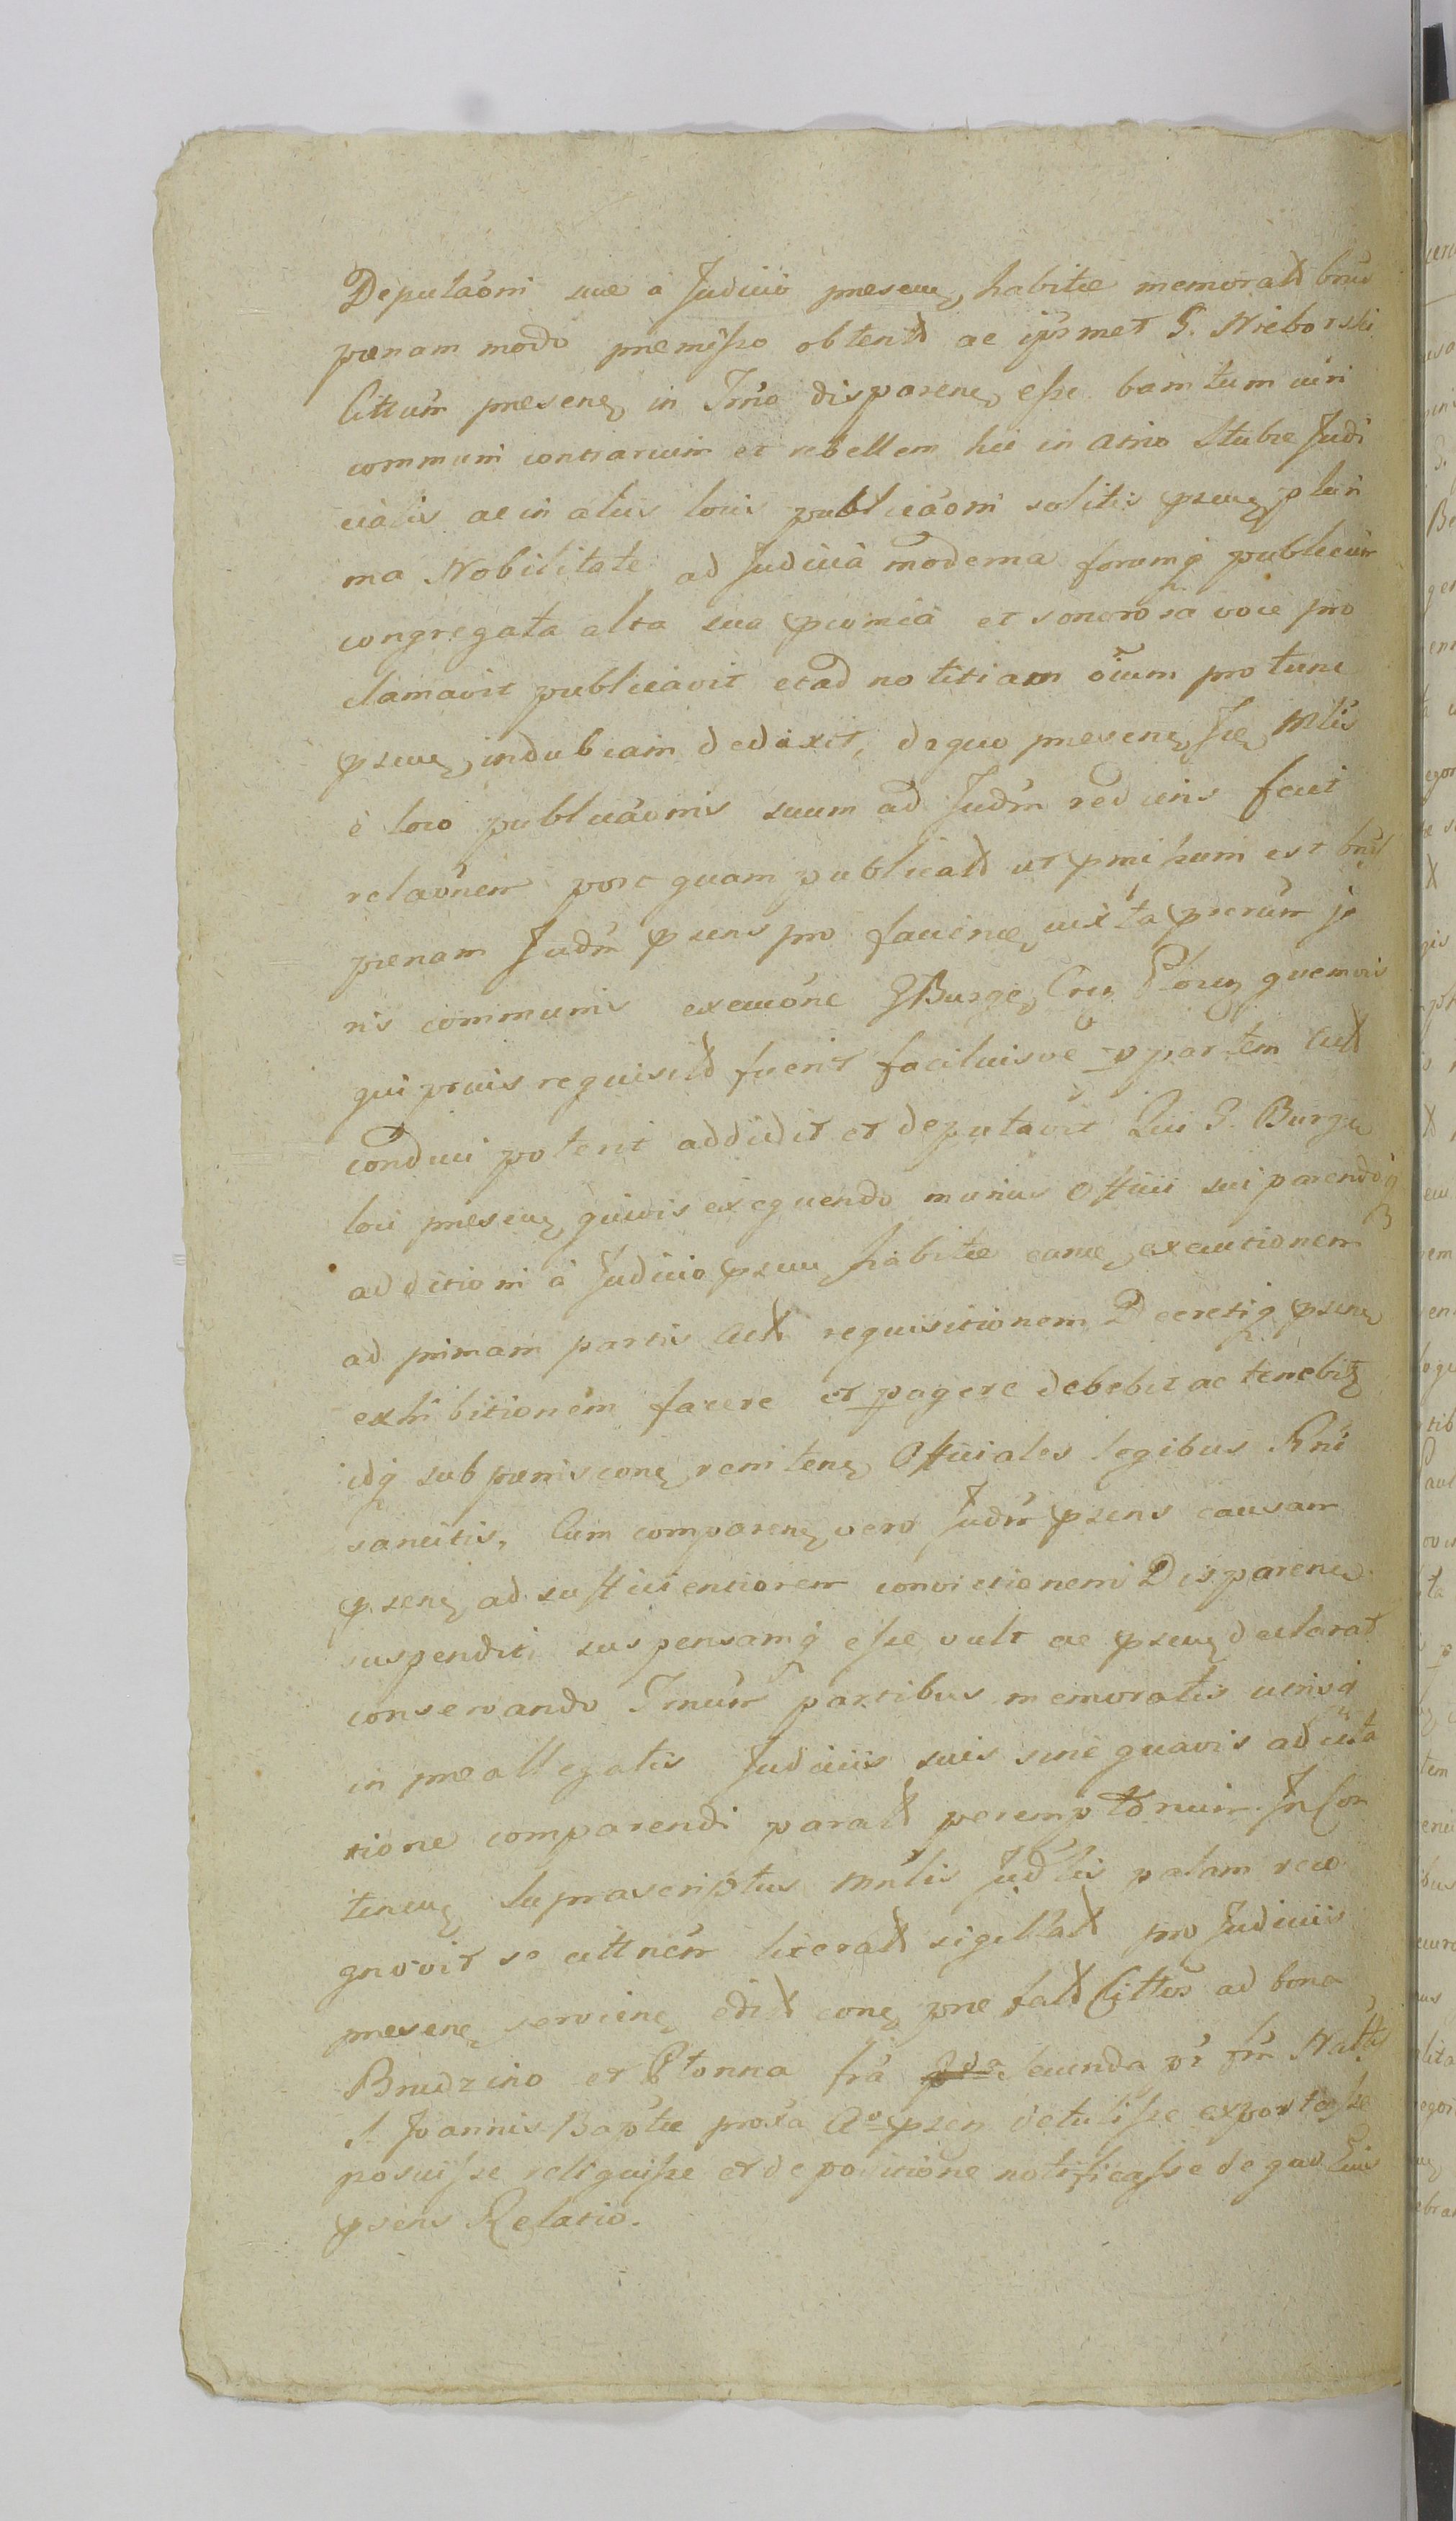 Deputaoni suae à Judicio praesenq habitae memoratt bnis
paenam modo praemisso obtentt ac ipsmet G. Nieborski
Cittum praesenq in Trno disparenq esse banitum viri
communi contrarium et rebellem hic in atrio Stubae Judi
cialis ac in aliis locis publicaoni solitis psenq pluri
ma Nobilitate ad Judicia moderna forumq publicum
congregata alta sua praeconicia et sonorosa voce pro
clamavit publicavit et ad notitiam oium pro tunc
psenq indubiam dedaxit, de quo praesenq Jce Mlis
è loco publicaonis suum ad Judm rediens fecit
relaonem post quam publicatt ut pmissum est bnis
paenam Judm psens pro facienq juxta pscrum ju
ris communis execuone G Burge, Crs Plocen quemvis
qui prius requisitt fuerit faciliusve p partem Actt
conduci poterit addidit et deputavit Qui G. Burge
loci praesenq quivis exequendo munius Officii sui parendoq
additioni à Judicio psenq habitae eanq executionem
ad primam partis Actt requisitionem Decretiq psenq
exhibitionem facere et pagere debebit ac tenebitz
idq sub paenis conq renitenq Officiales legibus Rni
sancitis, Cum comparenq vero Judm psens causam
psenq ad sufficientiorem convictionem Disparenq
suspendit, suspensamq esse vult ac psenq declarat
conservando Trnum partibus memoratis utrisq
in praeallegatis Judiciis suis sine quavis adcita
tione comparendi paratt peremptorium. In Con
tinenq Suprascriptus Mnlis Judlis palam reco
gnovit se cittnem literatt sigillatt pro Judiciis
praesenq servienq editt conq praefatt Cittos ad bona
Brudzino et Plonna fra secunda pt fm Nattis
S. Joannis Baptae proxa Ao psen detulisse exportasse
posuisse reliquisse et de positione notificasse de quo Eius
psens Relatio.